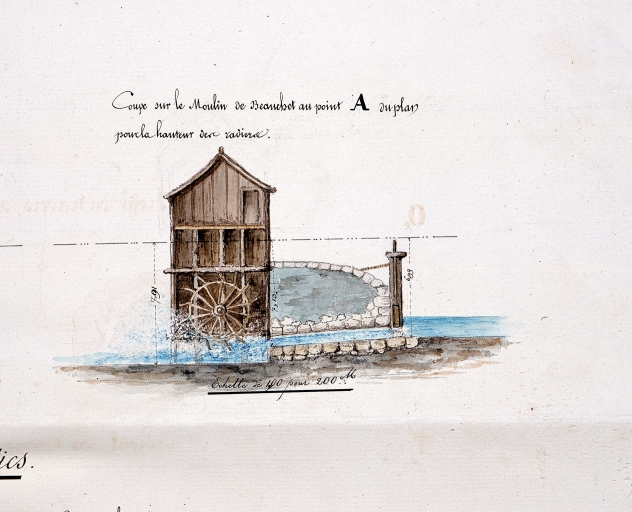 Coupe sur le Moulin de Beauchet au point A du plan
pour la hauteur des radiers.
Echelle de 40 pour 200.M
ics.